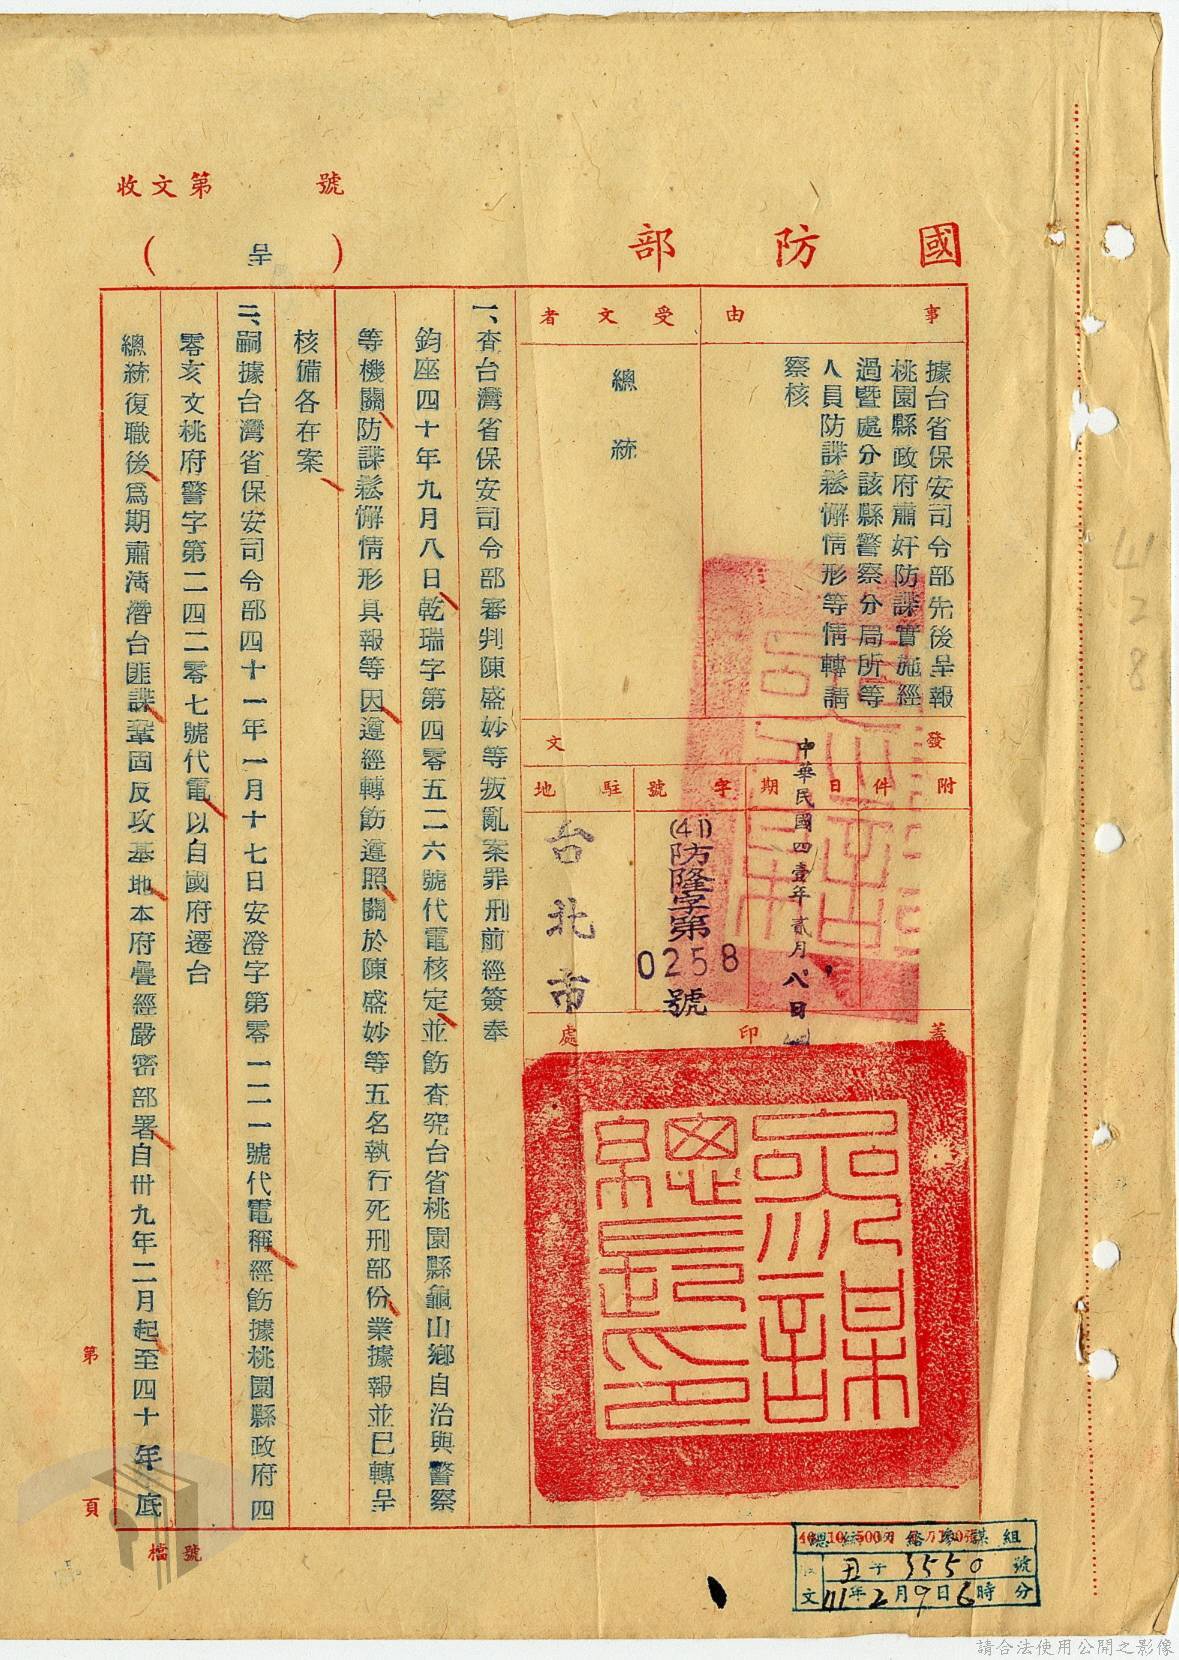 收文第 號
國防部
(呈)
事由
據台省保安司令部先後呈報
桃園縣政府肅奸防諜實施經
過暨處分該縣警察分局所等
人員防諜鬆懈情形等情轉請
察核
受文者
總統
發文
附件
日期
中華民國四壹年貳月八日
字號
(41)防隆字第
0258
號
駐地
台北市
蓋印處
參謀
總長印
一、查台灣省保安司令部審判陳盛妙等叛亂案罪刑前經簽奉
鈞座四十年九月八日乾瑞字第四零五二六號代電核定並飭查究台省桃園縣龜山鄉自治與警察
等機關防諜鬆懈情形具報等因遵經轉飭遵照關於陳盛妙等五名執行死刑部份業據報並已轉呈
核備各在案
二、嗣據台灣省保安司令部四十一年一月十七日安澄字第零一二一號代電稱經飭據桃園縣政府四
零亥文桃府警字第二四二零七號代電以自國府遷台
總統復職後爲期肅清潛台匪諜鞏固反攻基地本府疊經嚴密部署自卅九年二月起至四十年底
第 頁
檔號
組
丑字3550號
文41年2月9日6時 分
428
請合法使用公開之影像